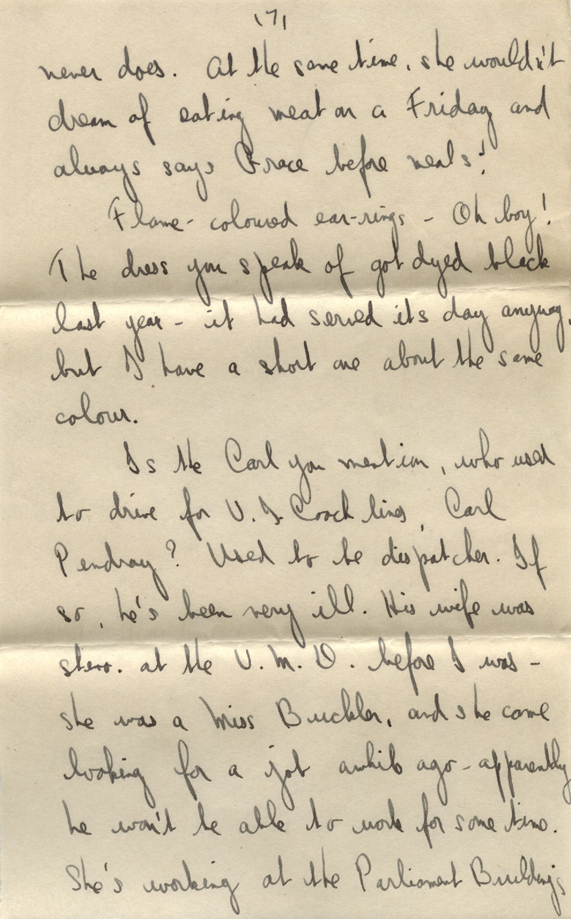 (7)
never does. At the same time, she wouldn't
dream of eating meat on a Friday and
always says Grace before meals!
Flame-coloured ear-rings - Oh boy!
The dress you speak of got dyed black
last year - it had served its day anyway,
but I have a short one about the same
colour.
Is the Carl you mention, who used
to drive for V.I Coach lines, Carl
Pendray? Used to be dispatcher. If
so, he's been very ill. His wife was
steno. at the V.M.D. before I was -
she was a Miss Buckler, and she came
looking for a job awhile ago - apparently
he won't be able to work for some time.
She's working at the Parliament Buildings